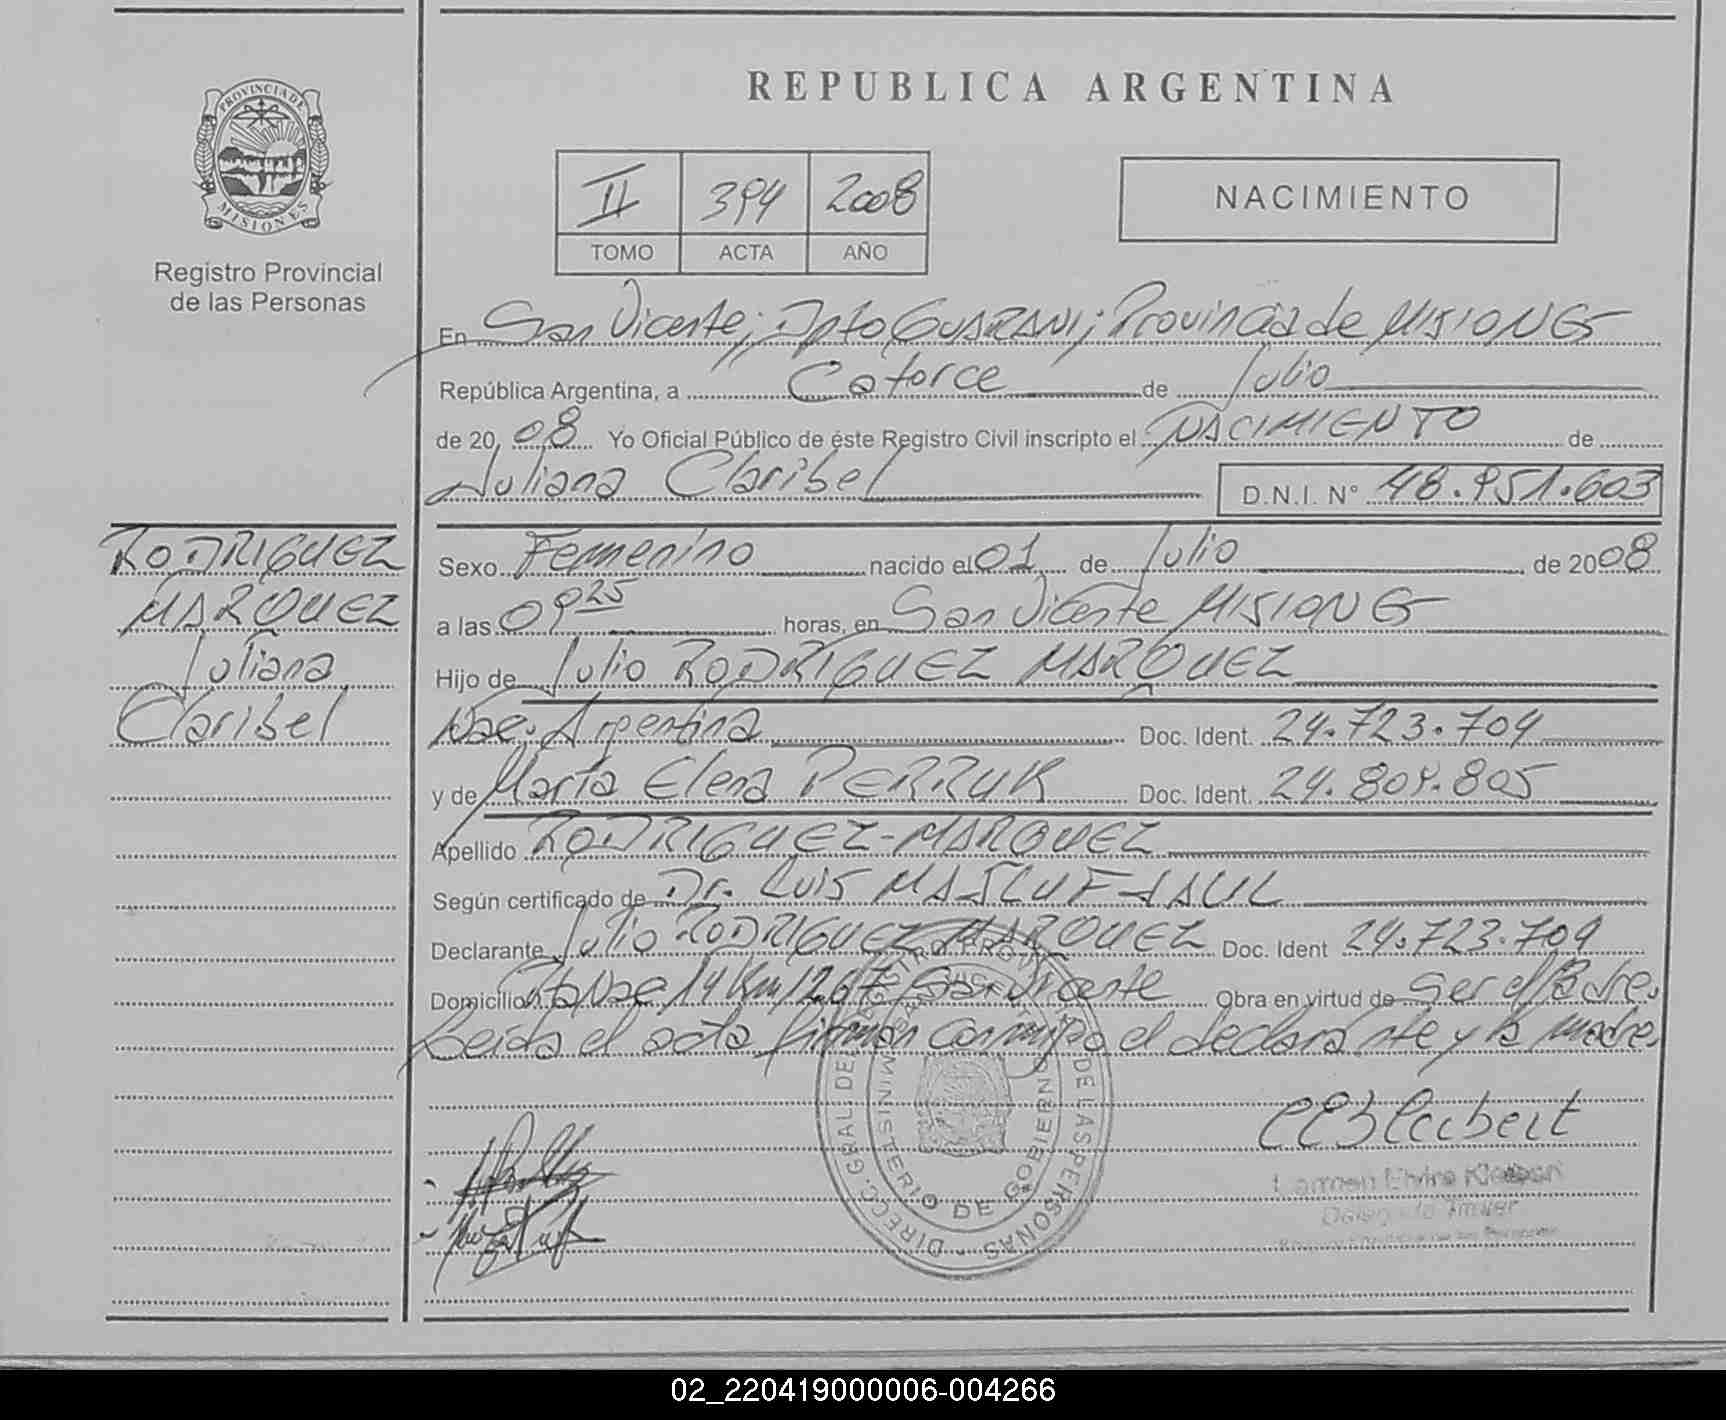 PROVINCIA DE
MISIONES
Registro Provincial
de las Personas
REPUBLICA ARGENTINA
II 394 2008
TOMO ACTA AÑO
NACIMIENTO
En San Vicente; Dpto GUARANI; Provincia de MISIONES
República Argentina, a Catorce de Julio
de 2008 Yo Oficial Público de éste Registro Civil inscripto el NACIMIENTO de
Juliana Claribel D.N.I. N° 48.951.603
RODRIGUEZ
MARQUEZ
Juliana
Claribel
Sexo Femenino nacido el 01 de Julio de 2008
a las 09 25 horas, en San Vicente MISIONES
Hijo de Julio RODRIGUEZ MARQUEZ
Nac. Argentina Doc. Ident. 24.723.704
y de Marta Elena PERRUK Doc. Ident. 24.809.805
Apellido RODRIGUEZ-MARQUEZ
Según certificado de Dr. Luis MASLUF SAUL
Declarante Julio RODRIGUEZ MARQUEZ Doc. Ident 24.723.704
Domicilio Nac 14 Km 1267 San Vicente Obra en virtud de Ser el Padre.
Leida el acta firman conmigo el declarante y la madre.
DIREC. GRAL. DEL REGISTRO PROV. DE LAS PERSONAS
MINISTERIO DE GOBIERNO
Carmen Elvira
02_220419000006-004266